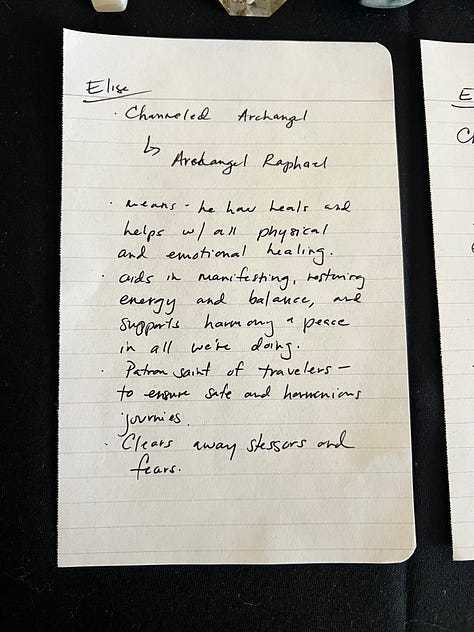 Elise
· Channeled Archangel
↳ Archangel Raphael
· means - he who heals and
helps w/ all physical
and emotional healing.
· aids in manifesting, restoring
energy and balance, and
supports harmony & peace
in all we're doing.
· Patron saint of travelers –
to ensure safe and harmonious
journies.
· Clears away stessors and
fears.
E
Ch